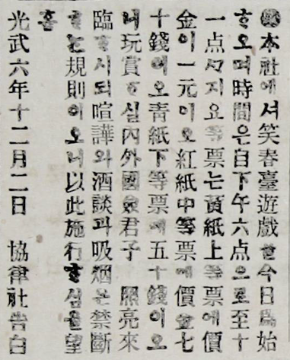 本社에셔笑春臺遊戲를今日爲始
ᄒᆞ오며時間은自下午六点으로至十
一点ᄭᆞ지요等票는黃紙上等票에價
金이一元이오紅紙中等票에價金七
十錢이오靑紙下等票에五十錢이오
니玩賞ᄒᆞ실內外國僉君子 照亮來
臨ᄒᆞ시되喧譁와酒談과吸烟은禁斷
ᄒᆞ는規則이오니以此施行ᄒᆞ심을望
홈
光武六年十二月二日 協律社告白